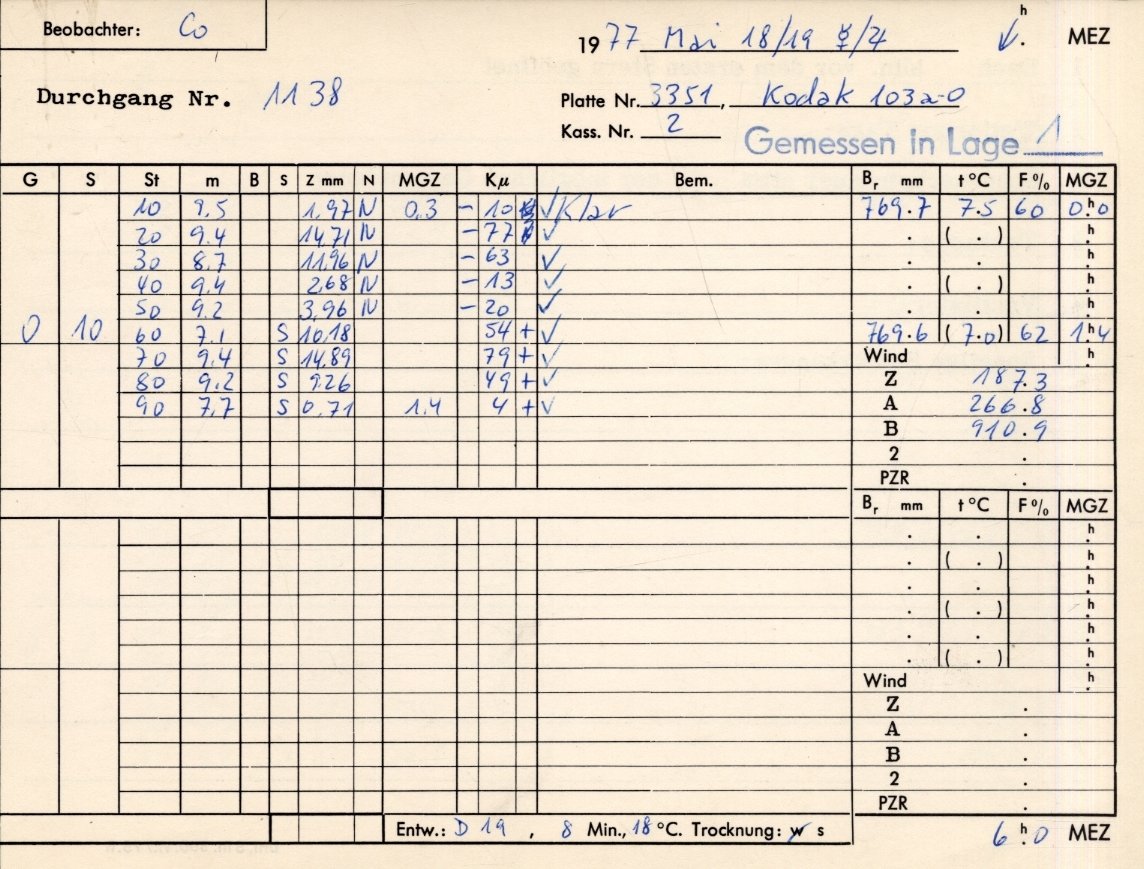 Beobachter: Co
1977 Mai 18/19 ☿/♃ h . MEZ
Durchgang Nr. 1138
Platte Nr. 3351, Kodak 103a-O
Kass. Nr. 2
Gemessen in Lage 1
G S St m B S Z mm N MGZ Kμ Bem. Br mm t °C F% MGZ
10 9.5 1.97 N 0.3 - 10 ✓ Klar 769.7 7.5 60 0.h0
20 9.4 14.71 N - 77 ✓ . ( . ) h.
30 8.7 11.96 N - 63 ✓ . . h.
40 9.4 2.68 N - 13 ✓ . ( . ) h.
50 9.2 3.96 N - 20 ✓ . . h.
0 10 60 7.1 S 10.18 54 + ✓ 769.6 (7.0) 62 1.h4
70 9.4 S 14.89 79 + ✓ Wind h.
80 9.2 S 9.26 49 + ✓ Z 187.3
90 7.7 S 0.71 1.4 4 + ✓ A 266.8
B 910.9
2 .
PZR .
Br mm t °C F% MGZ
. . h.
. ( . ) h.
. . h.
. ( . ) h.
. . h.
. ( . ) h.
Wind h.
Z .
A .
B .
2 .
PZR .
Entw.: D 19 , 8 Min., 18 °C. Trocknung: w s
6 h. 0 MEZ